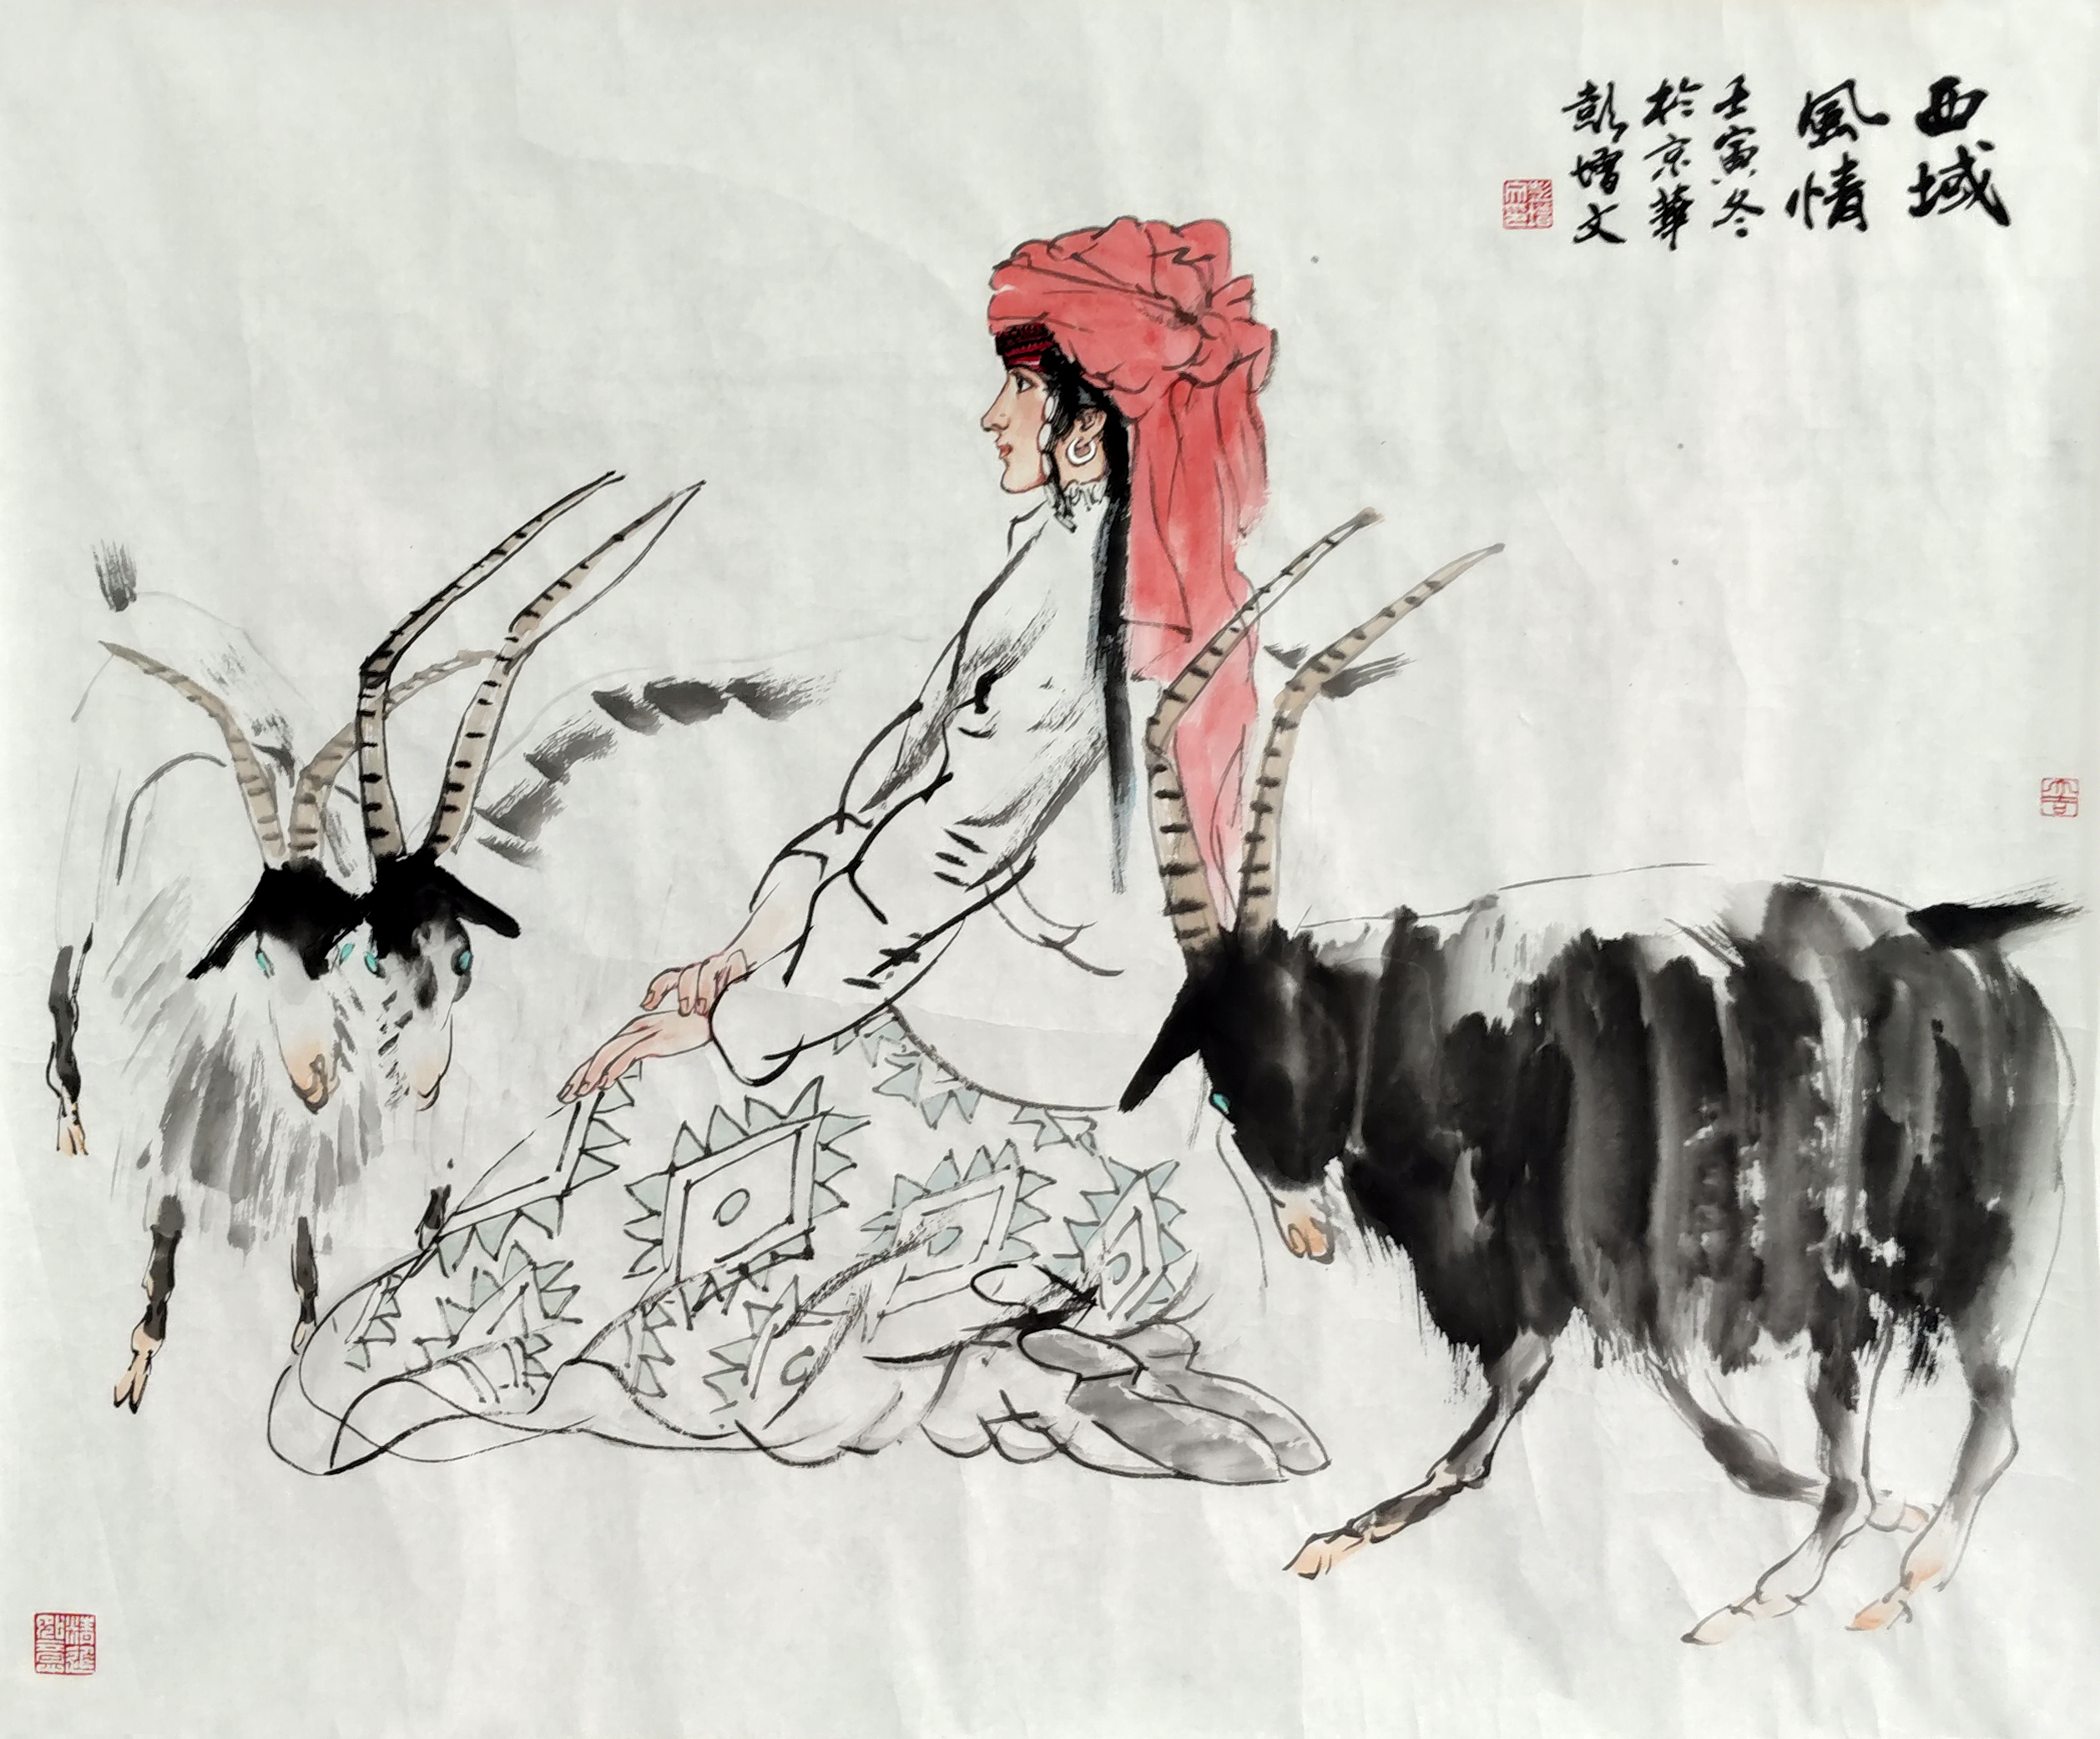 西域
風情
壬寅冬
於京華
彭增文